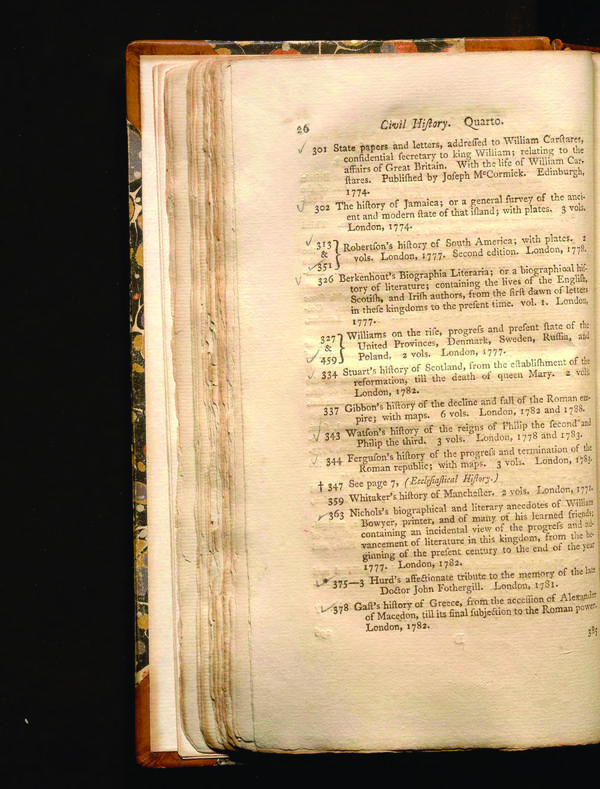 26 Civil Hiſtory. Quarto.
301 State papers and letters, addreſſed to William Carſtares,
confidential ſecretary to king William; relating to the
affairs of Great Britain. With the life of William Car-
ſtares. Publiſhed by Joſeph McCormick. Edinburgh,
1774.
302 The hiſtory of Jamaica; or a general ſurvey of the anci-
ent and modern ſtate of that iſland; with plates. 3 vols.
London, 1774.
313 & 351 } Robertſon's hiſtory of South America; with plates. 2
vols. London, 1777. Second edition. London, 1778.
326 Berkenhout's Biographia Literaria; or a biographical hiſ-
tory of literature; containing the lives of the Engliſh,
Scotiſh, and Iriſh authors, from the firſt dawn of letters
in theſe kingdoms to the preſent time. vol. 1. London,
1777.
327 & 459 } Williams on the riſe, progreſs and preſent ſtate of the
United Provinces, Denmark, Sweden, Ruſſia, and
Poland. 2 vols. London, 1777.
334 Stuart's hiſtory of Scotland, from the eſtabliſhment of the
reformation, till the death of queen Mary. 2 vols
London, 1782.
337 Gibbon's hiſtory of the decline and fall of the Roman em-
pire; with maps. 6 vols. London, 1782 and 1788.
343 Watſon's hiſtory of the reigns of Philip the ſecond and
Philip the third. 3 vols. London, 1778 and 1783.
344 Ferguſon's hiſtory of the progreſs and termination of the
Roman republic; with maps. 3 vols. London, 1783.
† 347 See page 7, (Eccleſiaſtical Hiſtory.)
359 Whitaker's hiſtory of Mancheſter. 2 vols. London, 1771.
363 Nichols's biographical and literary anecdotes of William
Bowyer, printer, and of many of his learned friends;
containing an incidental view of the progreſs and ad-
vancement of literature in this kingdom, from the be-
ginning of the preſent century to the end of the year
1777. London, 1782.
* 375—3 Hurd's affectionate tribute to the memory of the late
Doctor John Fothergill. London, 1781.
378 Gaſt's hiſtory of Greece, from the acceſſion of Alexander
of Macedon, till its final ſubjection to the Roman power.
London, 1782.
385